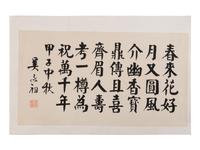 春來花好
月又圓風
介幽香寶
鼎傳且喜
齊眉人壽
考一樽為
祝萬千年
甲子中秋